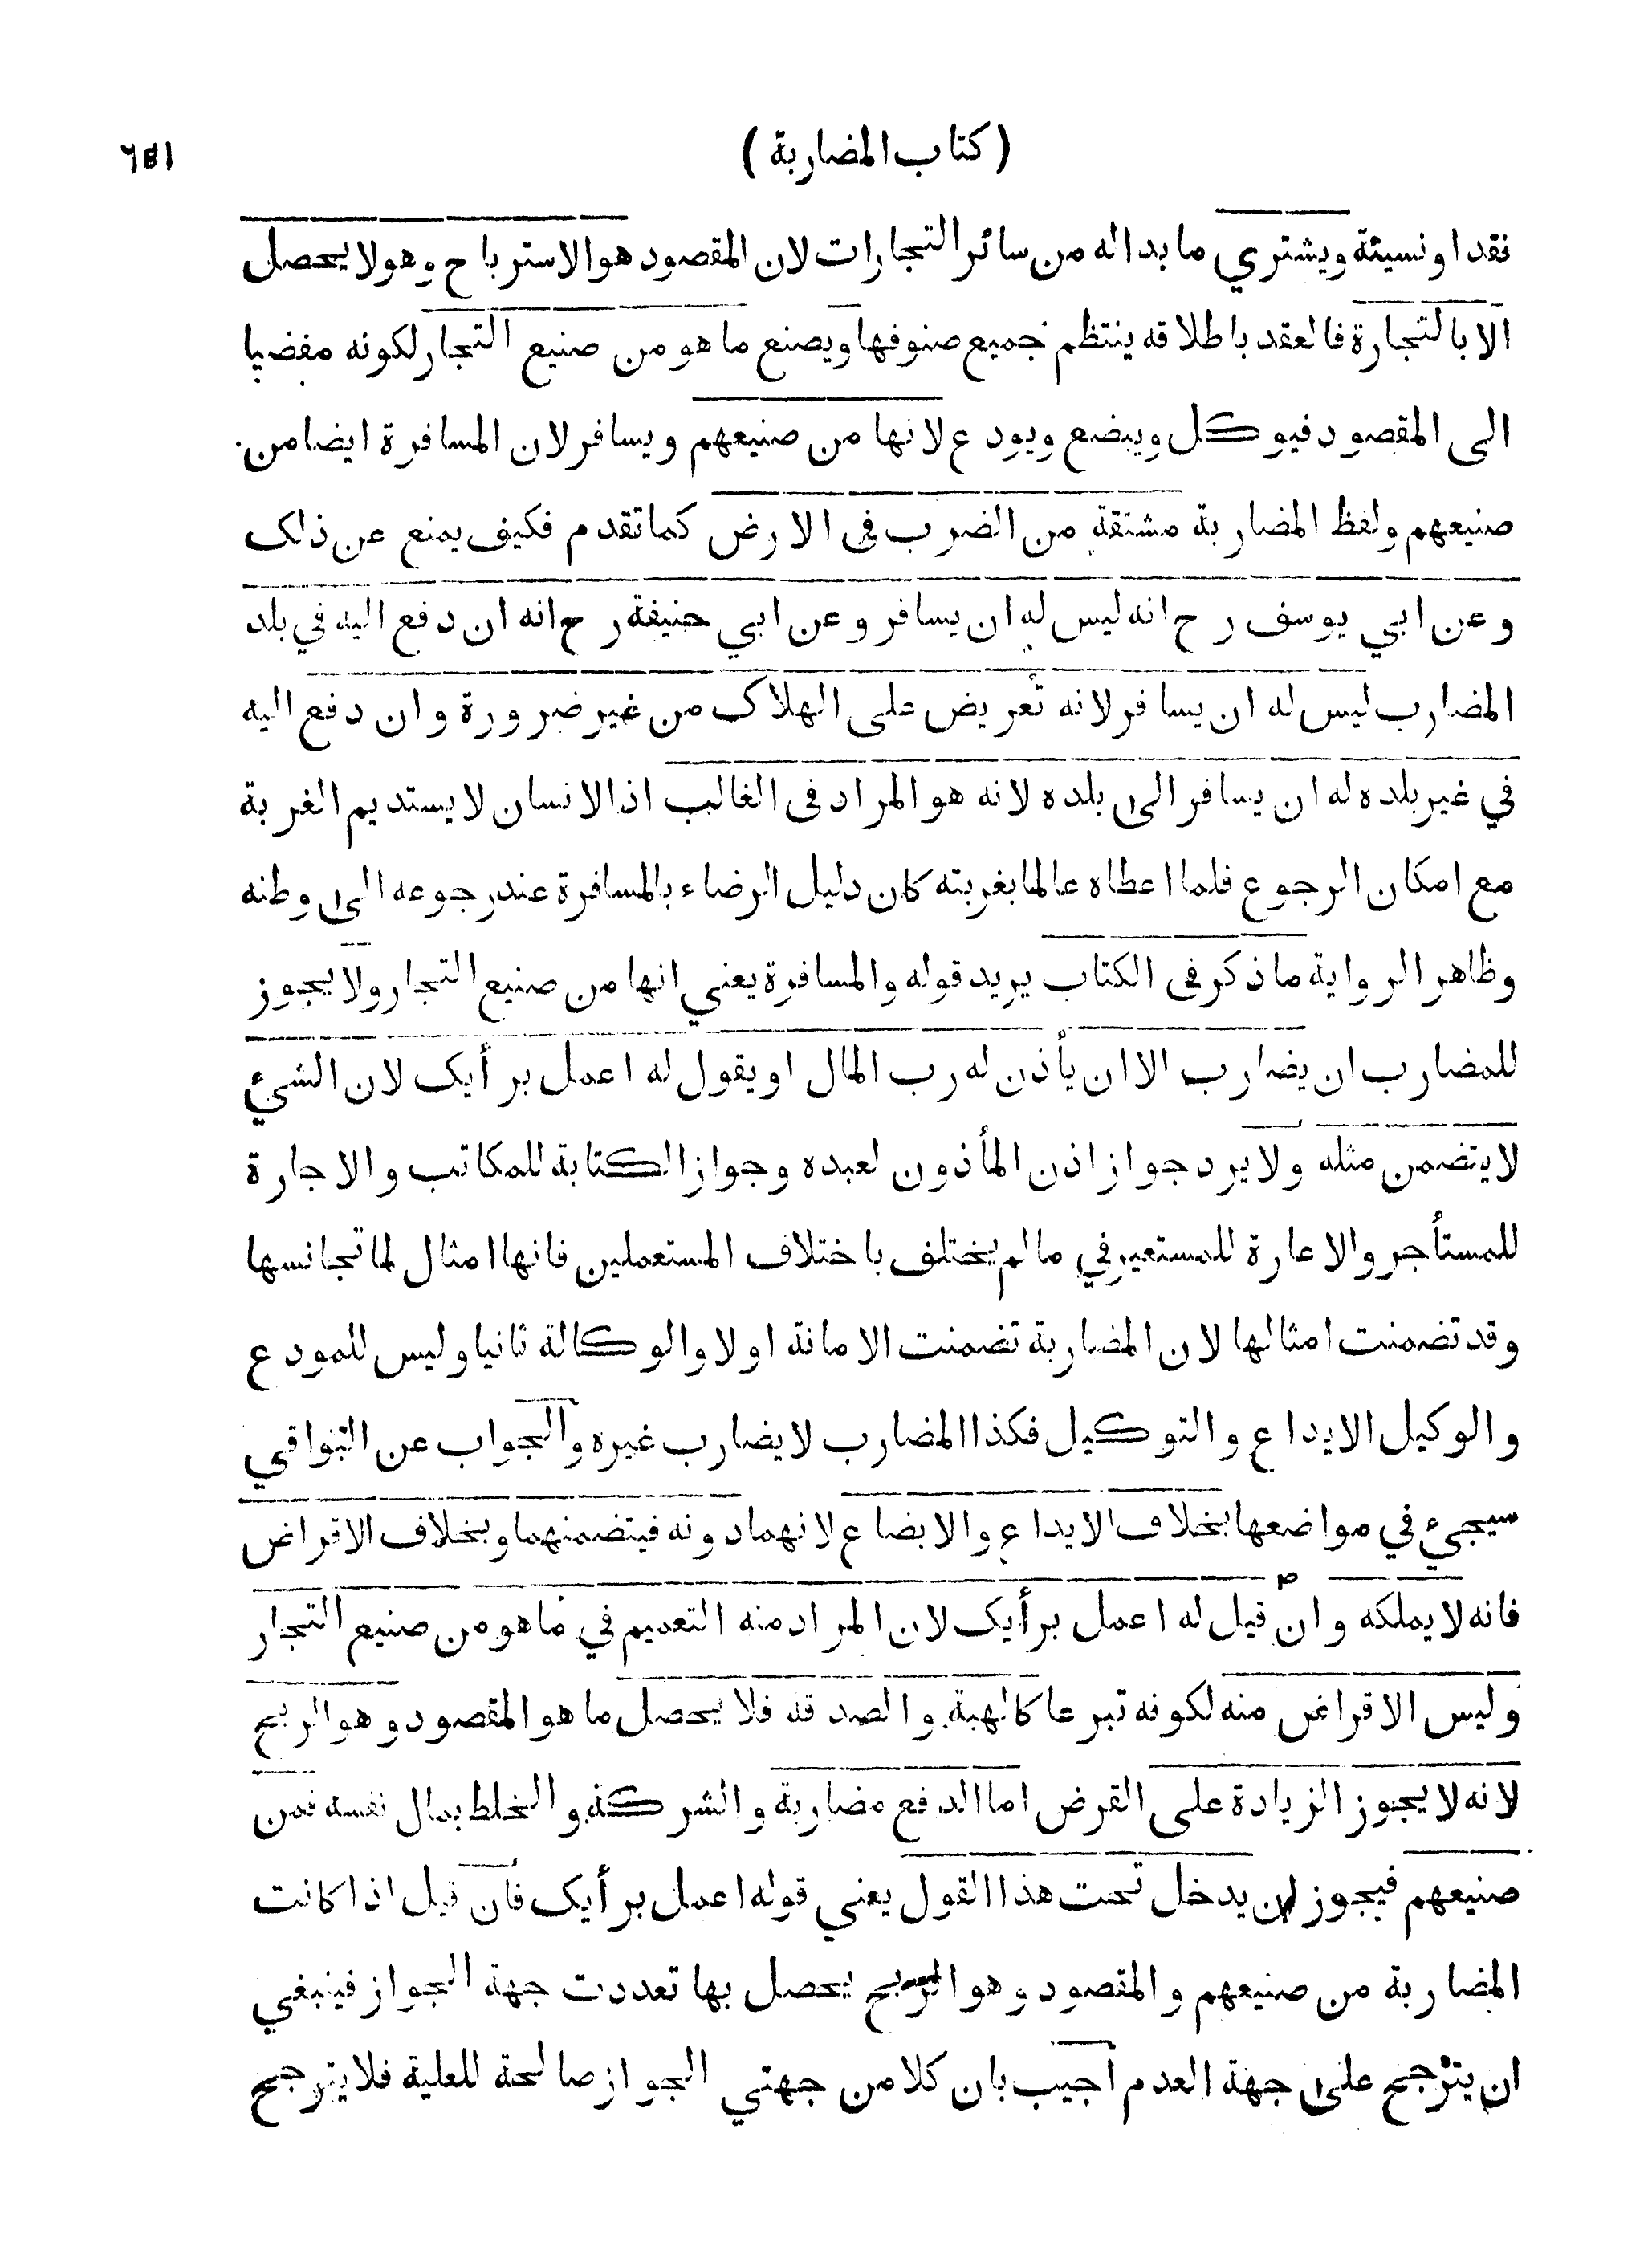 (كتاب المضاربة)
٦٨١
نقدا ونسيئة ويشتري ما بداله من سائر التجارات لان المقصود هو الاسترباح وهو لا يحصل
الا بالتجارة فالعقد باطلاقه ينتظم جميع صنوفها ويصنع ما هو من صنيع التجار لكونه مفضيا
الى المقصود فيوكل ويبضع ويودع لانها من صنيعهم ويسافر لان المسافرة ايضا من
صنيعهم ولفظ المضاربة مشتقة من الضرب في الارض كما تقدم فكيف يمنع عن ذلك
وعن ابي يوسف رح انه ليس له ان يسافر وعن ابي حنيفة رح انه ان دفع اليه في بلد
المضارب ليس له ان يسافر لانه تعريض على الهلاك من غير ضرورة وان دفع اليه
في غير بلده له ان يسافر الى بلده لانه هو المراد في الغالب اذ الانسان لا يستديم الغربة
مع امكان الرجوع فلما اعطاه عالما بغربته كان دليل الرضاء بالمسافرة عند رجوعه الى وطنه
وظاهر الرواية ما ذكر في الكتاب يريد قوله والمسافرة يعني انها من صنيع التجار ولا يجوز
للمضارب ان يضارب الا ان يأذن له رب المال او يقول له اعمل برأيك لان الشيء
لا يتضمن مثله ولا يرد جواز اذن المأذون لعبده وجواز الكتابة للمكاتب والاجارة
للمستأجر والاعارة للمستعير في ما لم يختلف باختلاف المستعملين فانها امثال لما تجانسها
وقد تضمنت امثالها لان المضاربة تضمنت الامانة اولا والوكالة ثانيا وليس للمودع
والوكيل الايداع والتوكيل فكذا المضارب لا يضارب غيره والجواب عن البواقي
سيجيء في مواضعها بخلاف الايداع والابضاع لانهما دونه فيتضمنهما وبخلاف الاقراض
فانه لا يملكه وان قيل له اعمل برأيك لان المراد منه التعميم في ما هو من صنيع التجار
وليس الاقراض منه لكونه تبرعا كالهبة والصدقة فلا يحصل ما هو المقصود وهو الربح
لانه لا يجوز الزيادة على القرض اما الدفع مضاربة والشركة والخلط بمال نفسه فمن
صنيعهم فيجوز ان يدخل تحت هذا القول يعني قوله اعمل برأيك فان قيل اذا كانت
المضاربة من صنيعهم والمقصود وهو الربح يحصل بها تعددت جهة الجواز فينبغي
ان يترجح على جهة العدم اجيب بان كلا من جهتي الجواز صالحة للعلية فلا يترجح